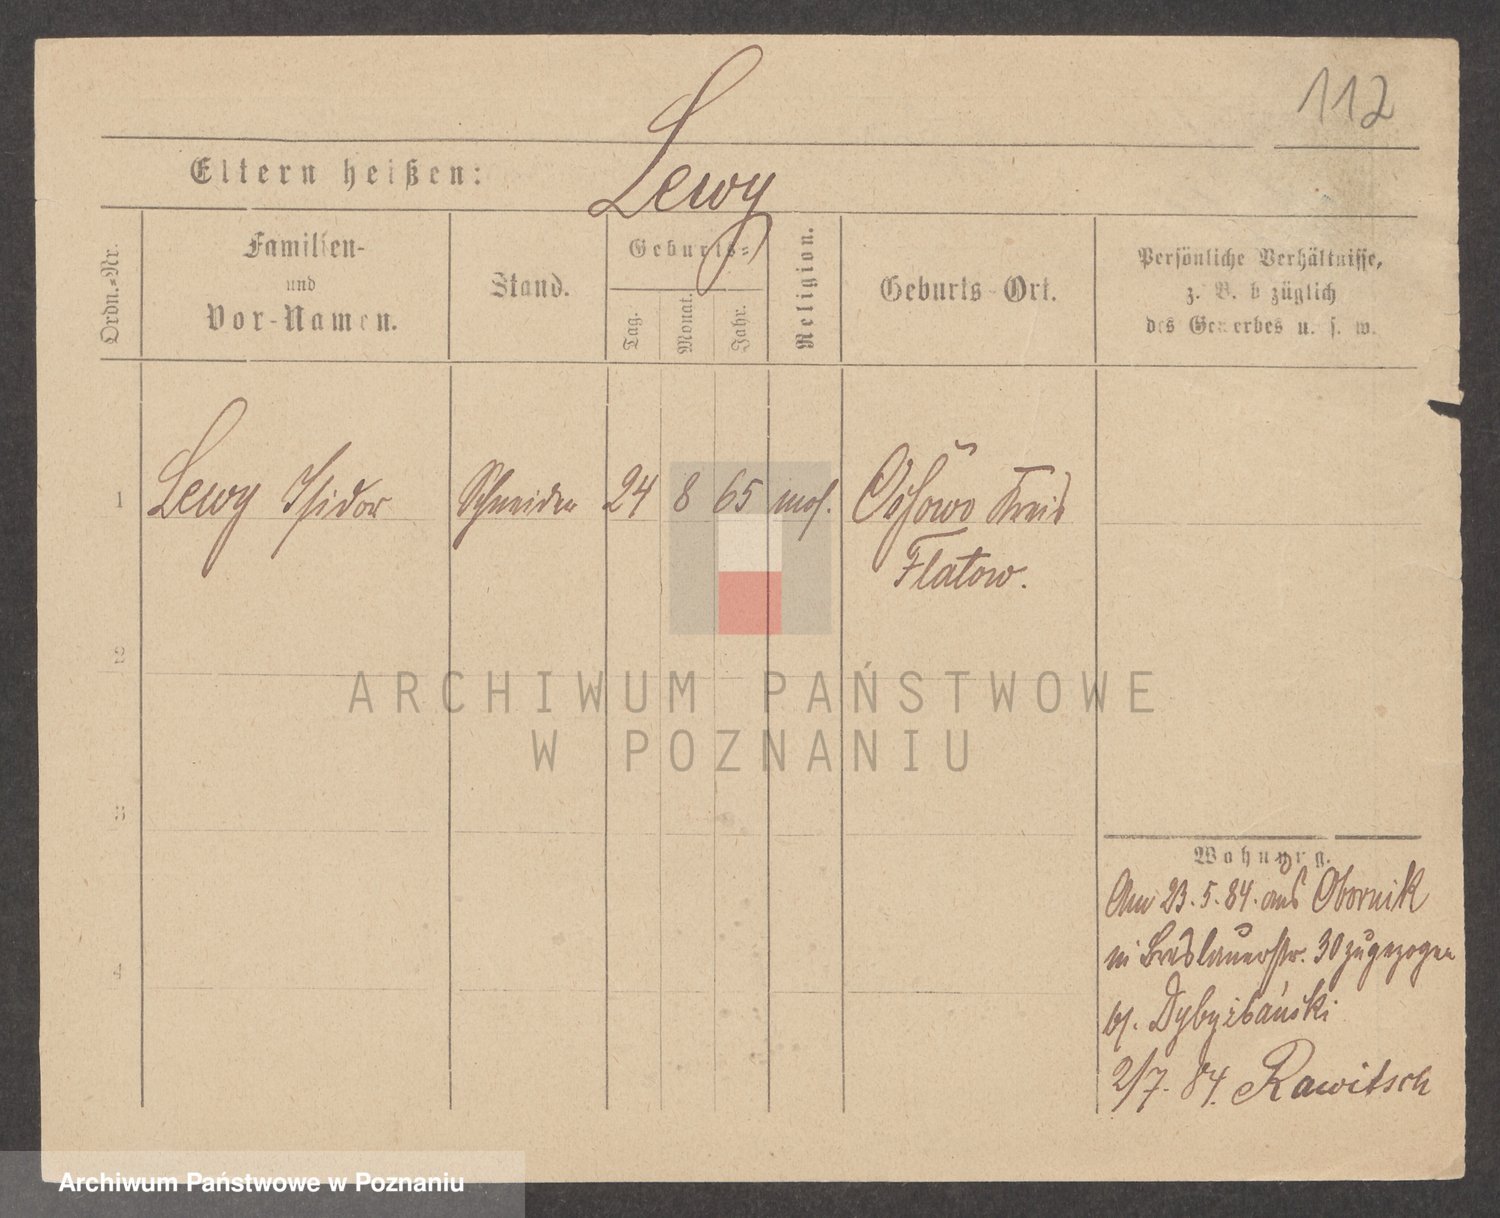 112
Eltern heißen: Lewy
Ordn.-Nr.
Familien-
und
Vor-Namen.
Stand.
Geburts-
Tag.
Monat.
Jahr.
Religion.
Geburts-Ort.
Persönliche Verhältnisse,
z. B. bezüglich
des Gewerbes u. s. w.
1 Lewy Isidor Schneider 24 8 65 mos. Kreis
Flatow.
2
3
4
ARCHIWUM PAŃSTWOWE
W POZNANIU
Wohnung.
Am 23.5.84. aus Obornik
in Breslauerstr. 30 zugezogen
2/7. 84. Rawitsch
Archiwum Państwowe w Poznaniu